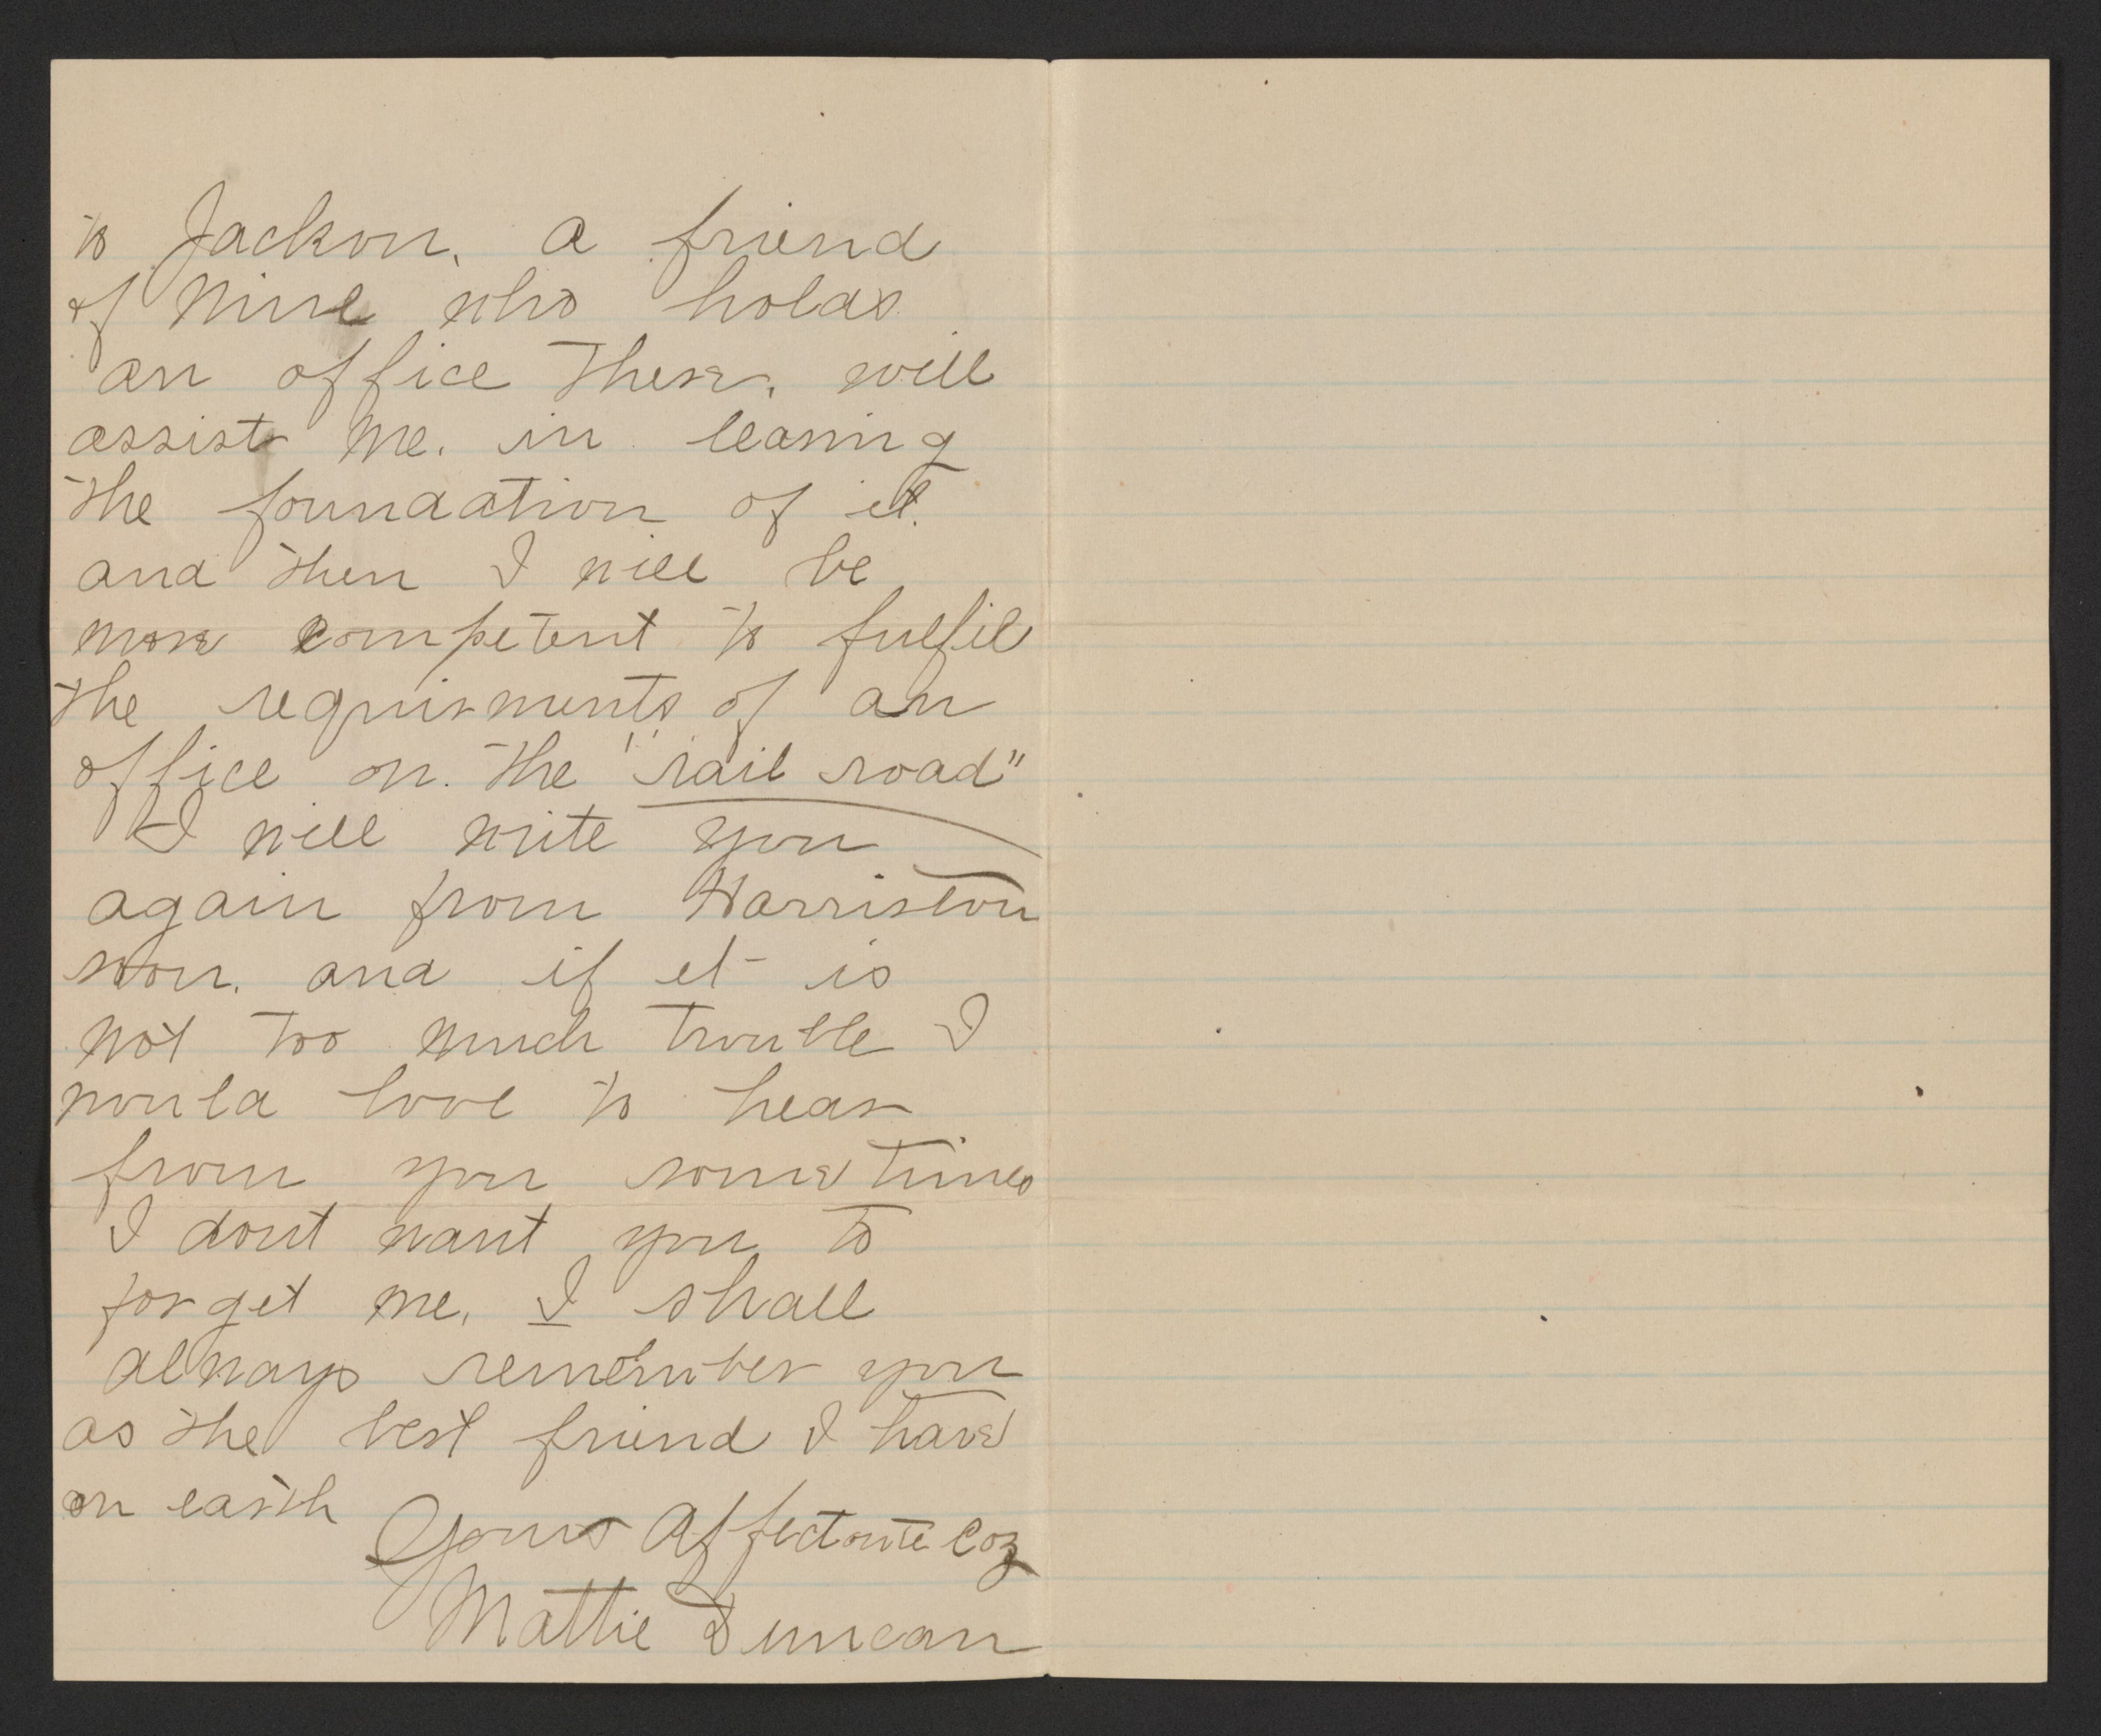 to Jackson, a friend
of Mine who holds
an office there, will
assist Me. in learning
the foundation of it.
and then I will be
more competent to fulfil
the requirments of an
office on. the "rail road"
I will write you
again from Harriston
soon. and if it is
not too much trouble I
would love to hear
from you sometimes
I dont want you to
forget me, I shall
always remember you
as the best friend I have
on earth
Yours Affectonte Coz
Mattie Duncan